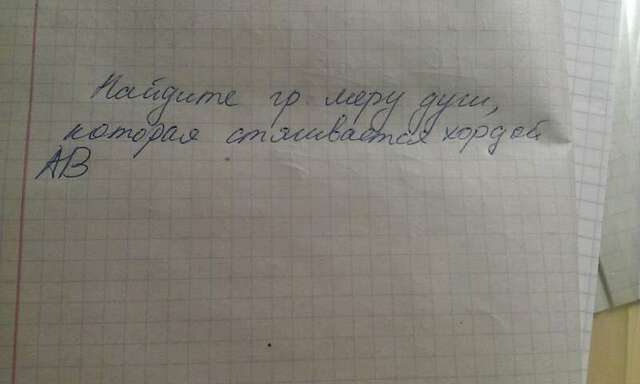 Найдите гр меру дуги,
которая стягивается хордой
АВ